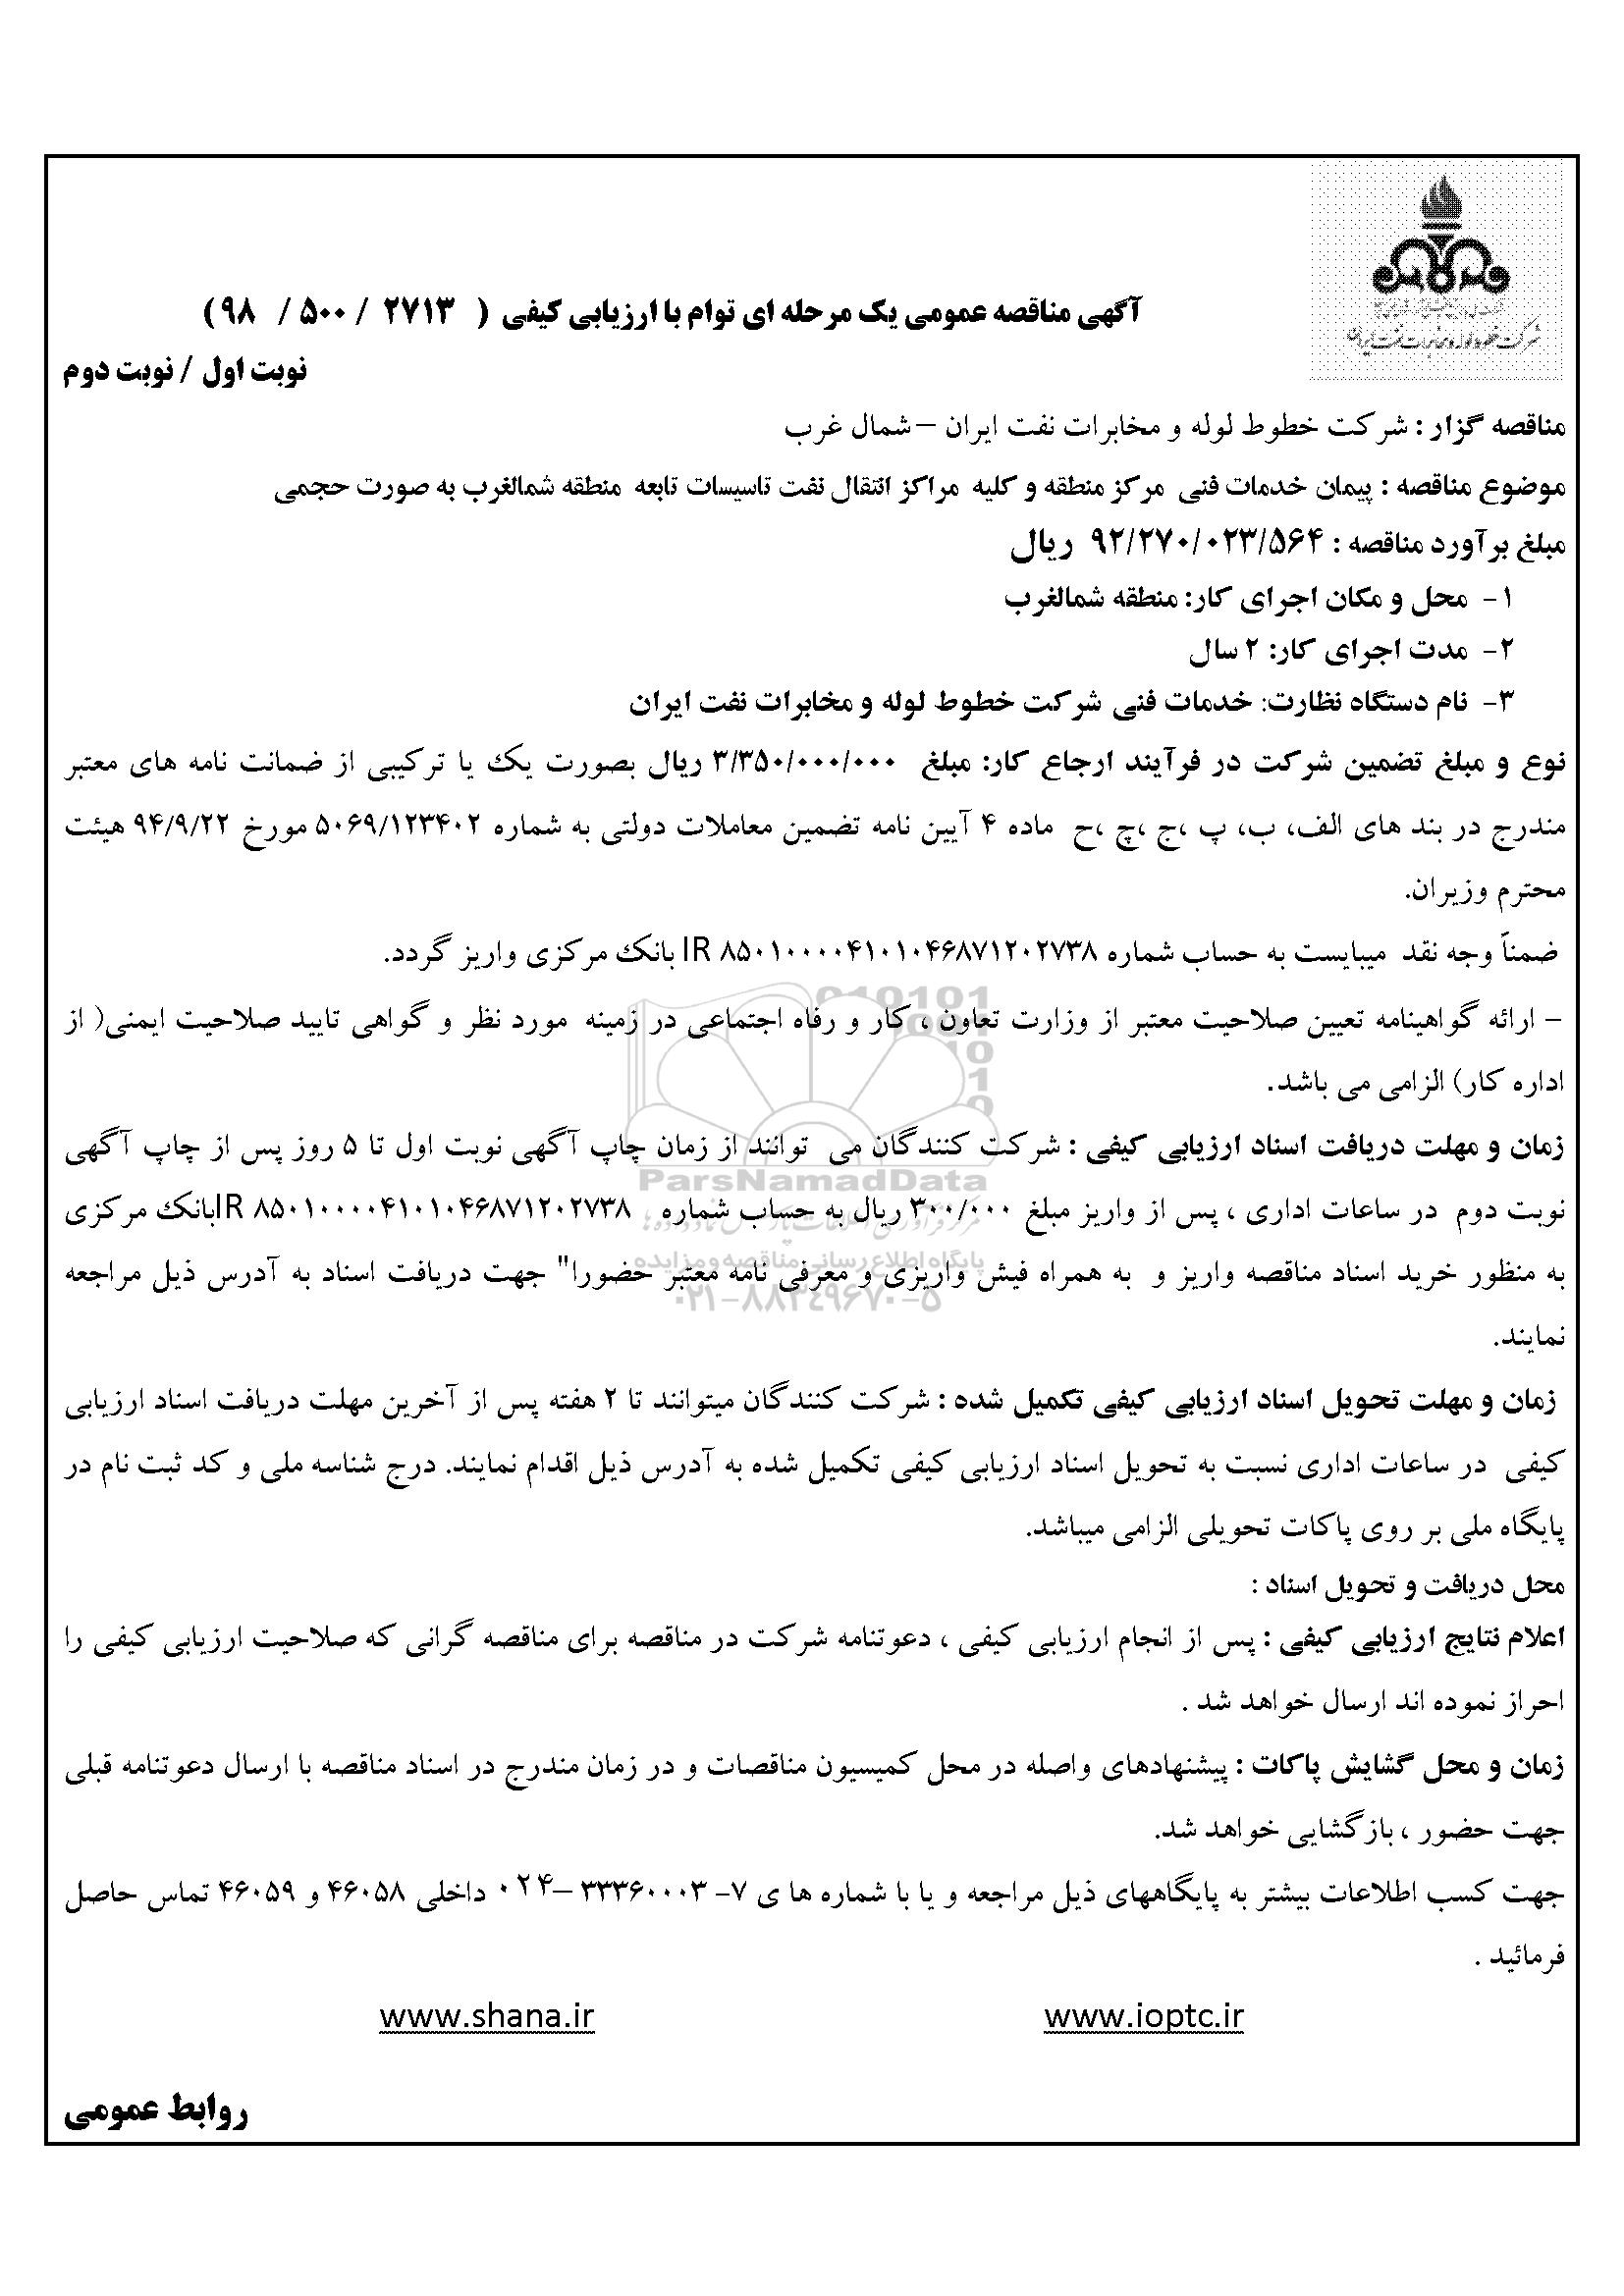 شرکت خطوط لوله و مخابرات نفت ایران
آگهی مناقصه عمومی یک مرحله ای توام با ارزیابی کیفی ( ۲۷۱۳ / ۵۰۰ / ۹۸ )
نوبت اول / نوبت دوم
مناقصه گزار : شرکت خطوط لوله و مخابرات نفت ایران – شمال غرب
موضوع مناقصه : پیمان خدمات فنی مرکز منطقه و کلیه مراکز انتقال نفت تاسیسات تابعه منطقه شمالغرب به صورت حجمی
مبلغ برآورد مناقصه : ۹۲/۲۷۰/۰۲۳/۵۶۴ ریال
۱- محل و مکان اجرای کار: منطقه شمالغرب
۲- مدت اجرای کار: ۲ سال
۳- نام دستگاه نظارت: خدمات فنی شرکت خطوط لوله و مخابرات نفت ایران
نوع و مبلغ تضمین شرکت در فرآیند ارجاع کار: مبلغ ۳/۳۵۰/۰۰۰/۰۰۰ ریال بصورت یک یا ترکیبی از ضمانت نامه های معتبر
مندرج در بند های الف، ب، پ ،ج ،چ ،ح ماده ۴ آیین نامه تضمین معاملات دولتی به شماره ۵۰۶۹/۱۲۳۴۰۲ مورخ ۹۴/۹/۲۲ هیئت
محترم وزیران.
ضمناً وجه نقد میبایست به حساب شماره IR ۸۵۰۱۰۰۰۰۴۱۰۱۰۴۶۸۷۱۲۰۲۷۳۸ بانک مرکزی واریز گردد.
– ارائه گواهینامه تعیین صلاحیت معتبر از وزارت تعاون ، کار و رفاه اجتماعی در زمینه مورد نظر و گواهی تایید صلاحیت ایمنی( از
اداره کار) الزامی می باشد.
زمان و مهلت دریافت اسناد ارزیابی کیفی : شرکت کنندگان می توانند از زمان چاپ آگهی نوبت اول تا ۵ روز پس از چاپ آگهی
ParsNamadData
نوبت دوم در ساعات اداری ، پس از واریز مبلغ ۳۰۰/۰۰۰ ریال به حساب شماره IR ۸۵۰۱۰۰۰۰۴۱۰۱۰۴۶۸۷۱۲۰۲۷۳۸بانک مرکزی
پایگاه اطلاع رسانی مناقصه و مزایده
به منظور خرید اسناد مناقصه واریز و به همراه فیش واریزی و معرفی نامه معتبر حضورا" جهت دریافت اسناد به آدرس ذیل مراجعه
۰۲۱-۸۸۳۴۹۶۷۰-۵
نمایند.
زمان و مهلت تحویل اسناد ارزیابی کیفی تکمیل شده : شرکت کنندگان میتوانند تا ۲ هفته پس از آخرین مهلت دریافت اسناد ارزیابی
کیفی در ساعات اداری نسبت به تحویل اسناد ارزیابی کیفی تکمیل شده به آدرس ذیل اقدام نمایند. درج شناسه ملی و کد ثبت نام در
پایگاه ملی بر روی پاکات تحویلی الزامی میباشد.
محل دریافت و تحویل اسناد :
اعلام نتایج ارزیابی کیفی : پس از انجام ارزیابی کیفی ، دعوتنامه شرکت در مناقصه برای مناقصه گرانی که صلاحیت ارزیابی کیفی را
احراز نموده اند ارسال خواهد شد .
زمان و محل گشایش پاکات : پیشنهادهای واصله در محل کمیسیون مناقصات و در زمان مندرج در اسناد مناقصه با ارسال دعوتنامه قبلی
جهت حضور ، بازگشایی خواهد شد.
جهت کسب اطلاعات بیشتر به پایگاههای ذیل مراجعه و یا با شماره ها ی ۷- ۳۳۳۶۰۰۰۳ –۰۲۴ داخلی ۴۶۰۵۸ و ۴۶۰۵۹ تماس حاصل
فرمائید .
www.ioptc.ir www.shana.ir
روابط عمومی